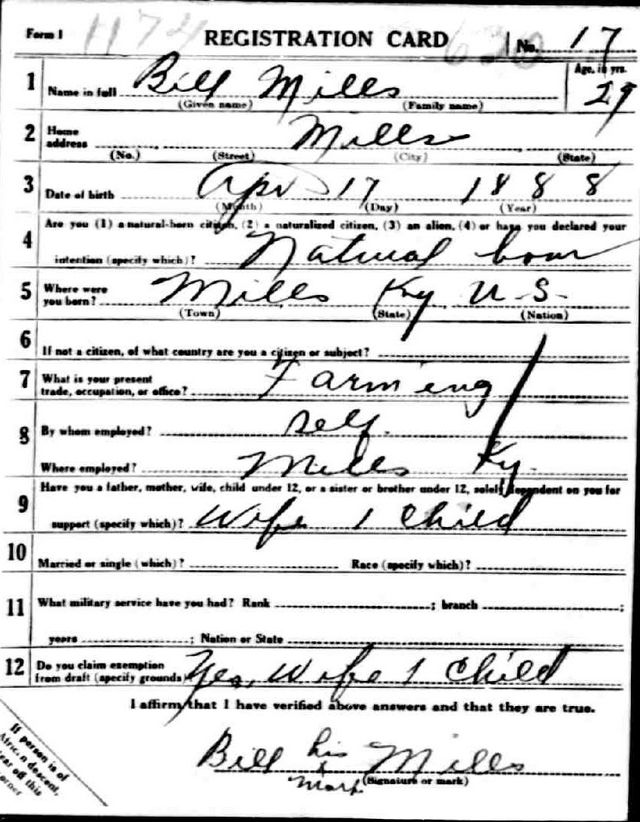 Form 1 1174 REGISTRATION CARD 630 No. 17
1 Name in full Bill Mills Age, in yrs. 29
(Given name) (Family name)
2 Home address Mills
(No.) (Street) (City) (State)
3 Date of birth Apr 17 1888
(Month) (Day) (Year)
4 Are you (1) a natural-born citizen, (2) a naturalized citizen, (3) an alien, (4) or have you declared your
intention (specify which)? Natural born
5 Where were you born? Mills Ky U.S.
(Town) (State) (Nation)
6 If not a citizen, of what country are you a citizen or subject?
7 What is your present trade, occupation, or office? Farmieng
8 By whom employed? self.
Where employed? Mills Ky.
9 Have you a father, mother, wife, child under 12, or a sister or brother under 12, solely dependent on you for
support (specify which)? Wife 1 Child
10 Married or single (which)? Race (specify which)?
11 What military service have you had? Rank ; branch ;
years ; Nation or State
12 Do you claim exemption from draft (specify grounds) Yes, Wife 1 Child
I affirm that I have verified above answers and that they are true.
Bill his x mark Mills
(Signature or mark)
If person is of
African descent,
tear off this
corner